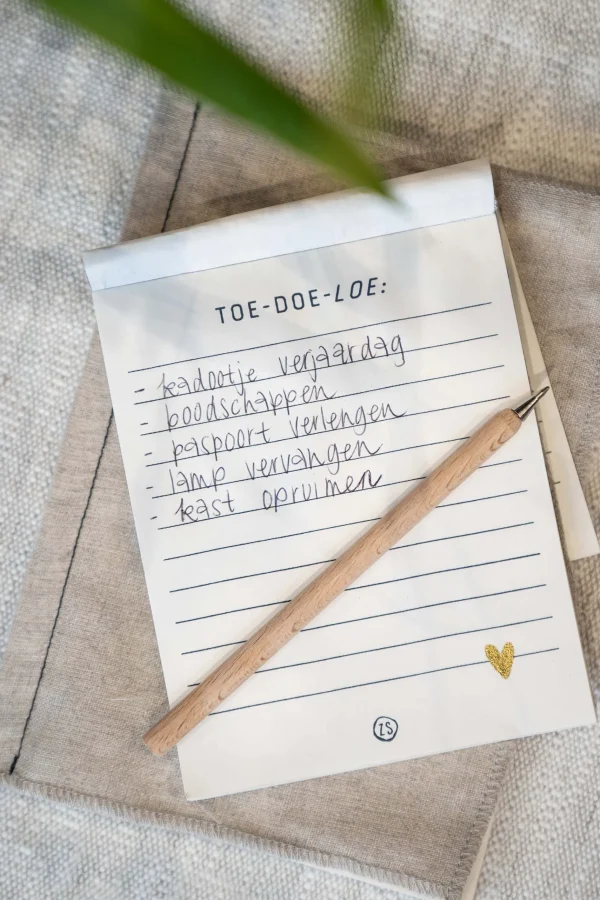 TOE-DOE-LOE:
- kadootje verjaardag
- boodschappen
- paspoort verlengen
- lamp vervangen
- kast opruimen
ZS